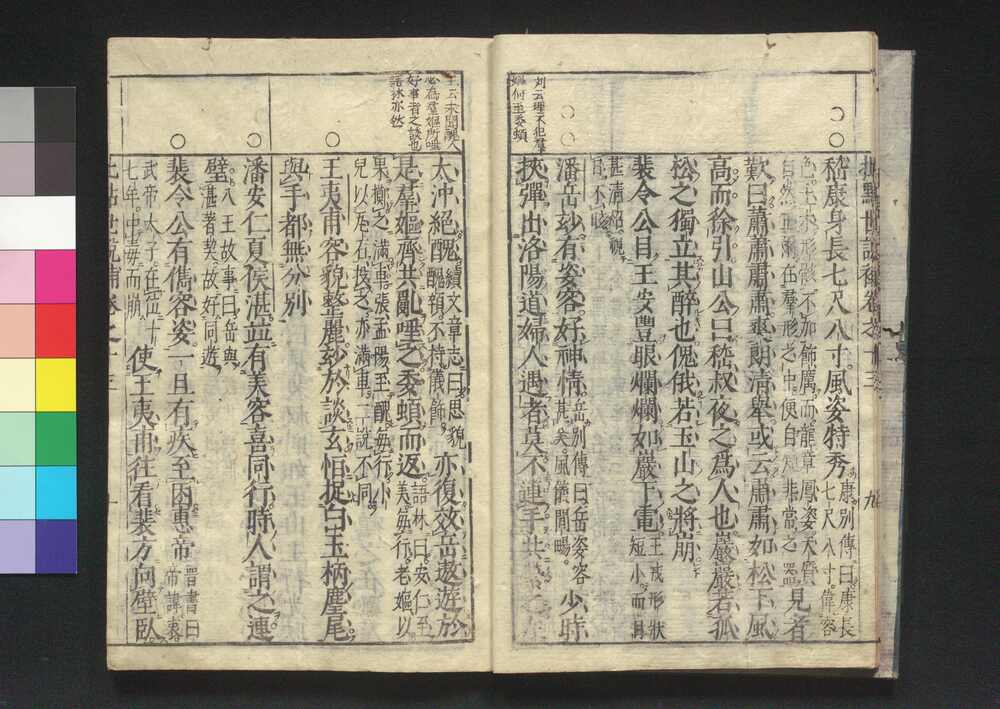 嵇康身長七尺八寸風姿特秀康別傳曰康長七尺八寸偉容
色土木形骸不加飾厲而龍章鳳姿天質自然正爾在羣形之中便自知非常之器見者
歎曰蕭蕭肅肅爽朗清舉或云肅肅如松下風
高而徐引山公曰嵇叔夜之爲人也巖巖若孤
松之獨立其醉也傀俄若玉山之將崩
裴令公目王安豐眼爛爛如巖下電王戎形狀短小而目
甚清炤視日不眩
潘岳妙有姿容好神情岳別傳曰岳姿容甚美風儀閒暢少時
挾彈出洛陽道婦人遇者莫不連手共
劉云理不犯羣嫗何至委頓
王云未聞醜人必爲羣嫗所唾好事者之談也語林亦然
太沖絕醜續文章志曰思貌醜顇不持儀飾亦復效岳遨遊於
是羣嫗齊共亂唾之委頓而返語林曰安仁至美每行老嫗以
果擲之滿車張孟陽至醜每行小兒以瓦石投之亦滿車二說不同
王夷甫容貌整麗妙於談玄恒捉白玉柄麈尾
與手都無分別
潘安仁夏侯湛並有美容喜同行時人謂之連
璧八王故事曰岳與湛著契故好同遊
裴令公有儁容姿一旦有疾至困惠帝晉書曰帝諱衷
武帝太子在位十七年中毒而崩使王夷甫往看裴方向壁臥